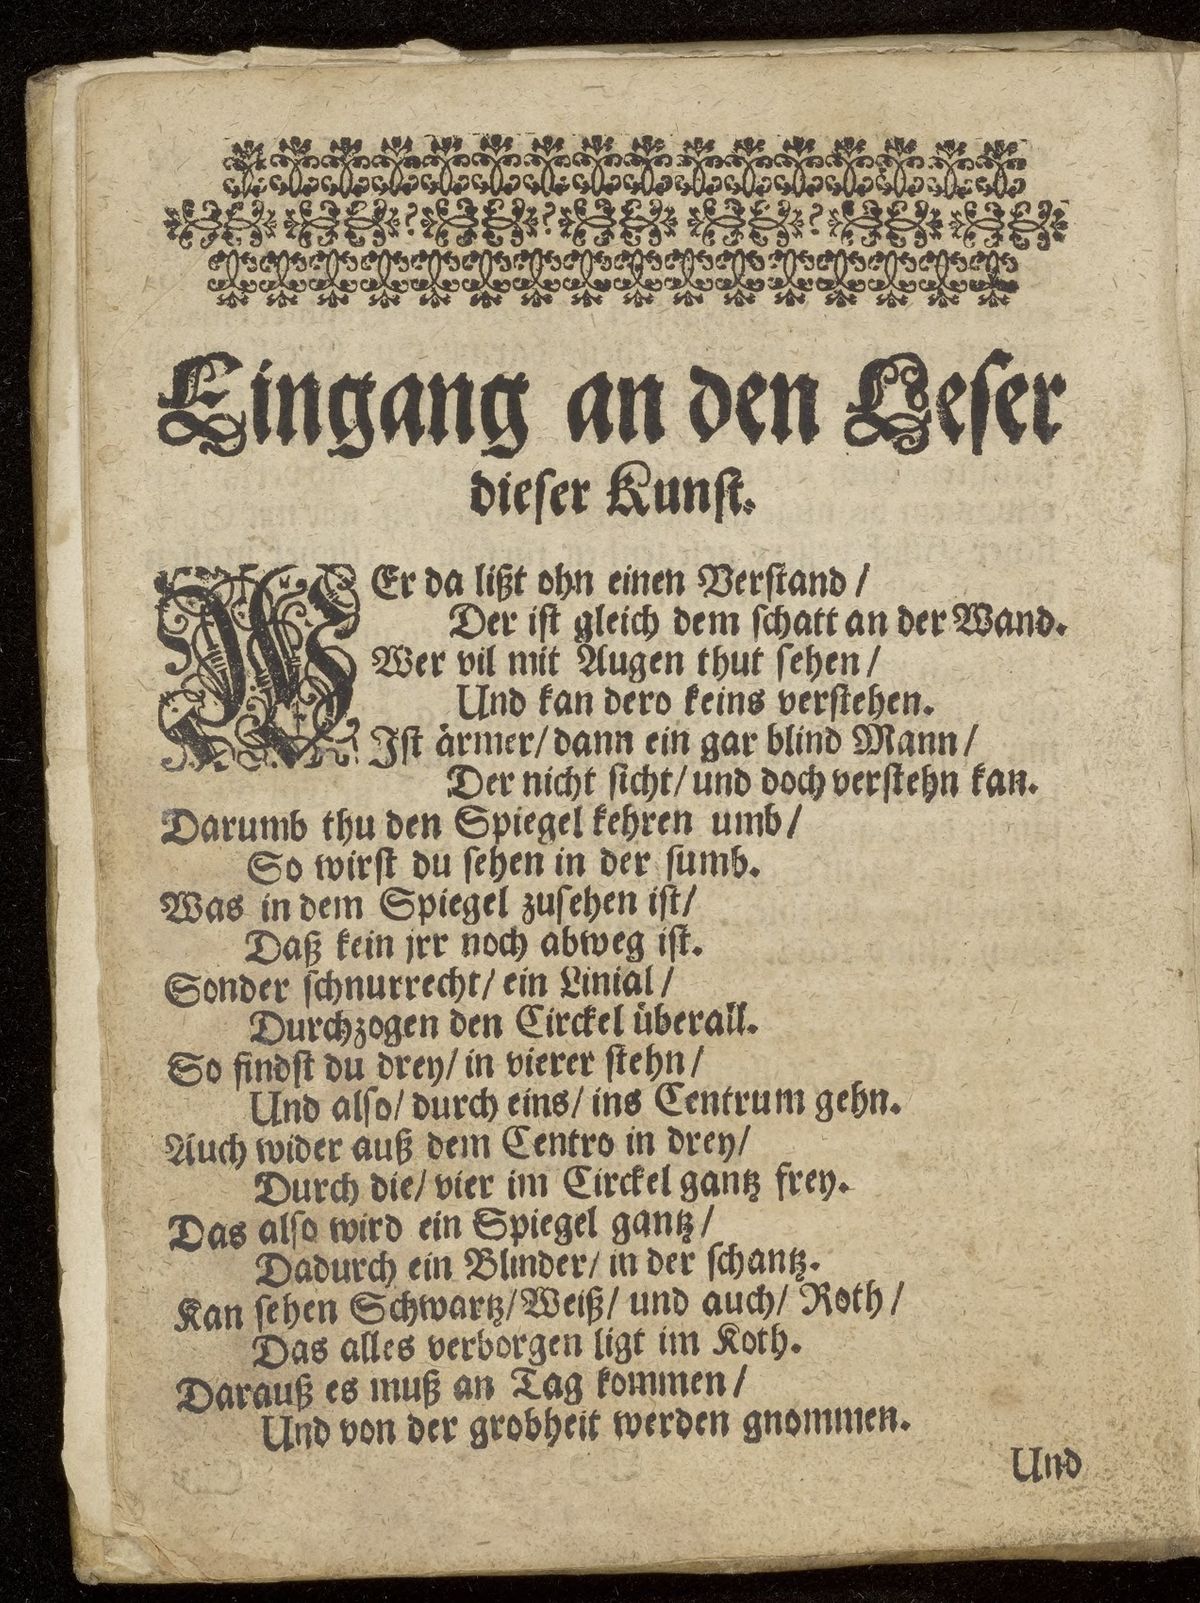 Eingang an den Leser
dieser Kunst.
WEr da lißt ohn einen Verstand /
Der ist gleich dem schatt an der Wand.
Wer vil mit Augen thut sehen /
Und kan dero keins verstehen.
Ist ärmer / dann ein gar blind Mann /
Der nicht sicht / und doch verstehn kan.
Darumb thu den Spiegel kehren umb /
So wirst du sehen in der sumb.
Was in dem Spiegel zusehen ist /
Daß kein jrr noch abweg ist.
Sonder schnurrecht / ein Linial /
Durchzogen den Circkel überall.
So findst du drey / in vierer stehn /
Und also / durch eins / ins Centrum gehn.
Auch wider auß dem Centro in drey /
Durch die / vier im Circkel gantz frey.
Das also wird ein Spiegel gantz /
Dadurch ein Blinder / in der schantz.
Kan sehen Schwartz / Weiß / und auch / Roth /
Das alles verborgen ligt im Koth.
Darauß es muß an Tag kommen /
Und von der grobheit werden gnommen.
Und